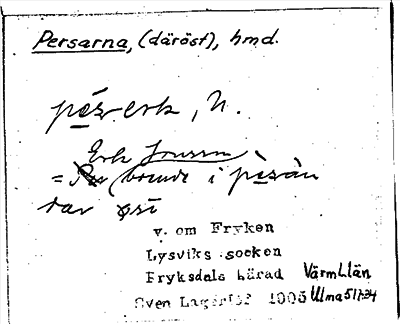 Persarna, (däröst), hmd.
pésærk, N.
Erk Jonsson
= boende i pèsàn
var øst
v. om Fryken
Lysviks socken
Fryksdals härad Värml.län
Sven 1905 Ulma 517:34